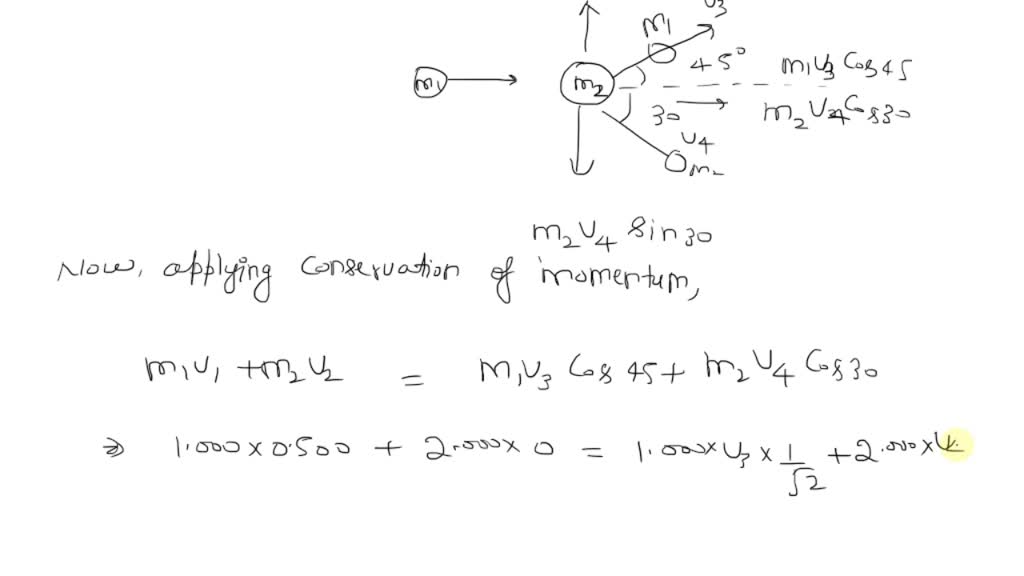 v3
m1
45° m1v3 Cos 45
m1 m2
30 m2v4 Cos 30
v4
m2
m2v4 sin 30
Now, applying Conservation of momentum,
m1v1 + m2v2 = m1v3 Cos 45 + m2v4 Cos 30
⇒ 1.000 × 0.500 + 2.000 × 0 = 1.000 × v3 × 1/√2 + 2.000 ×